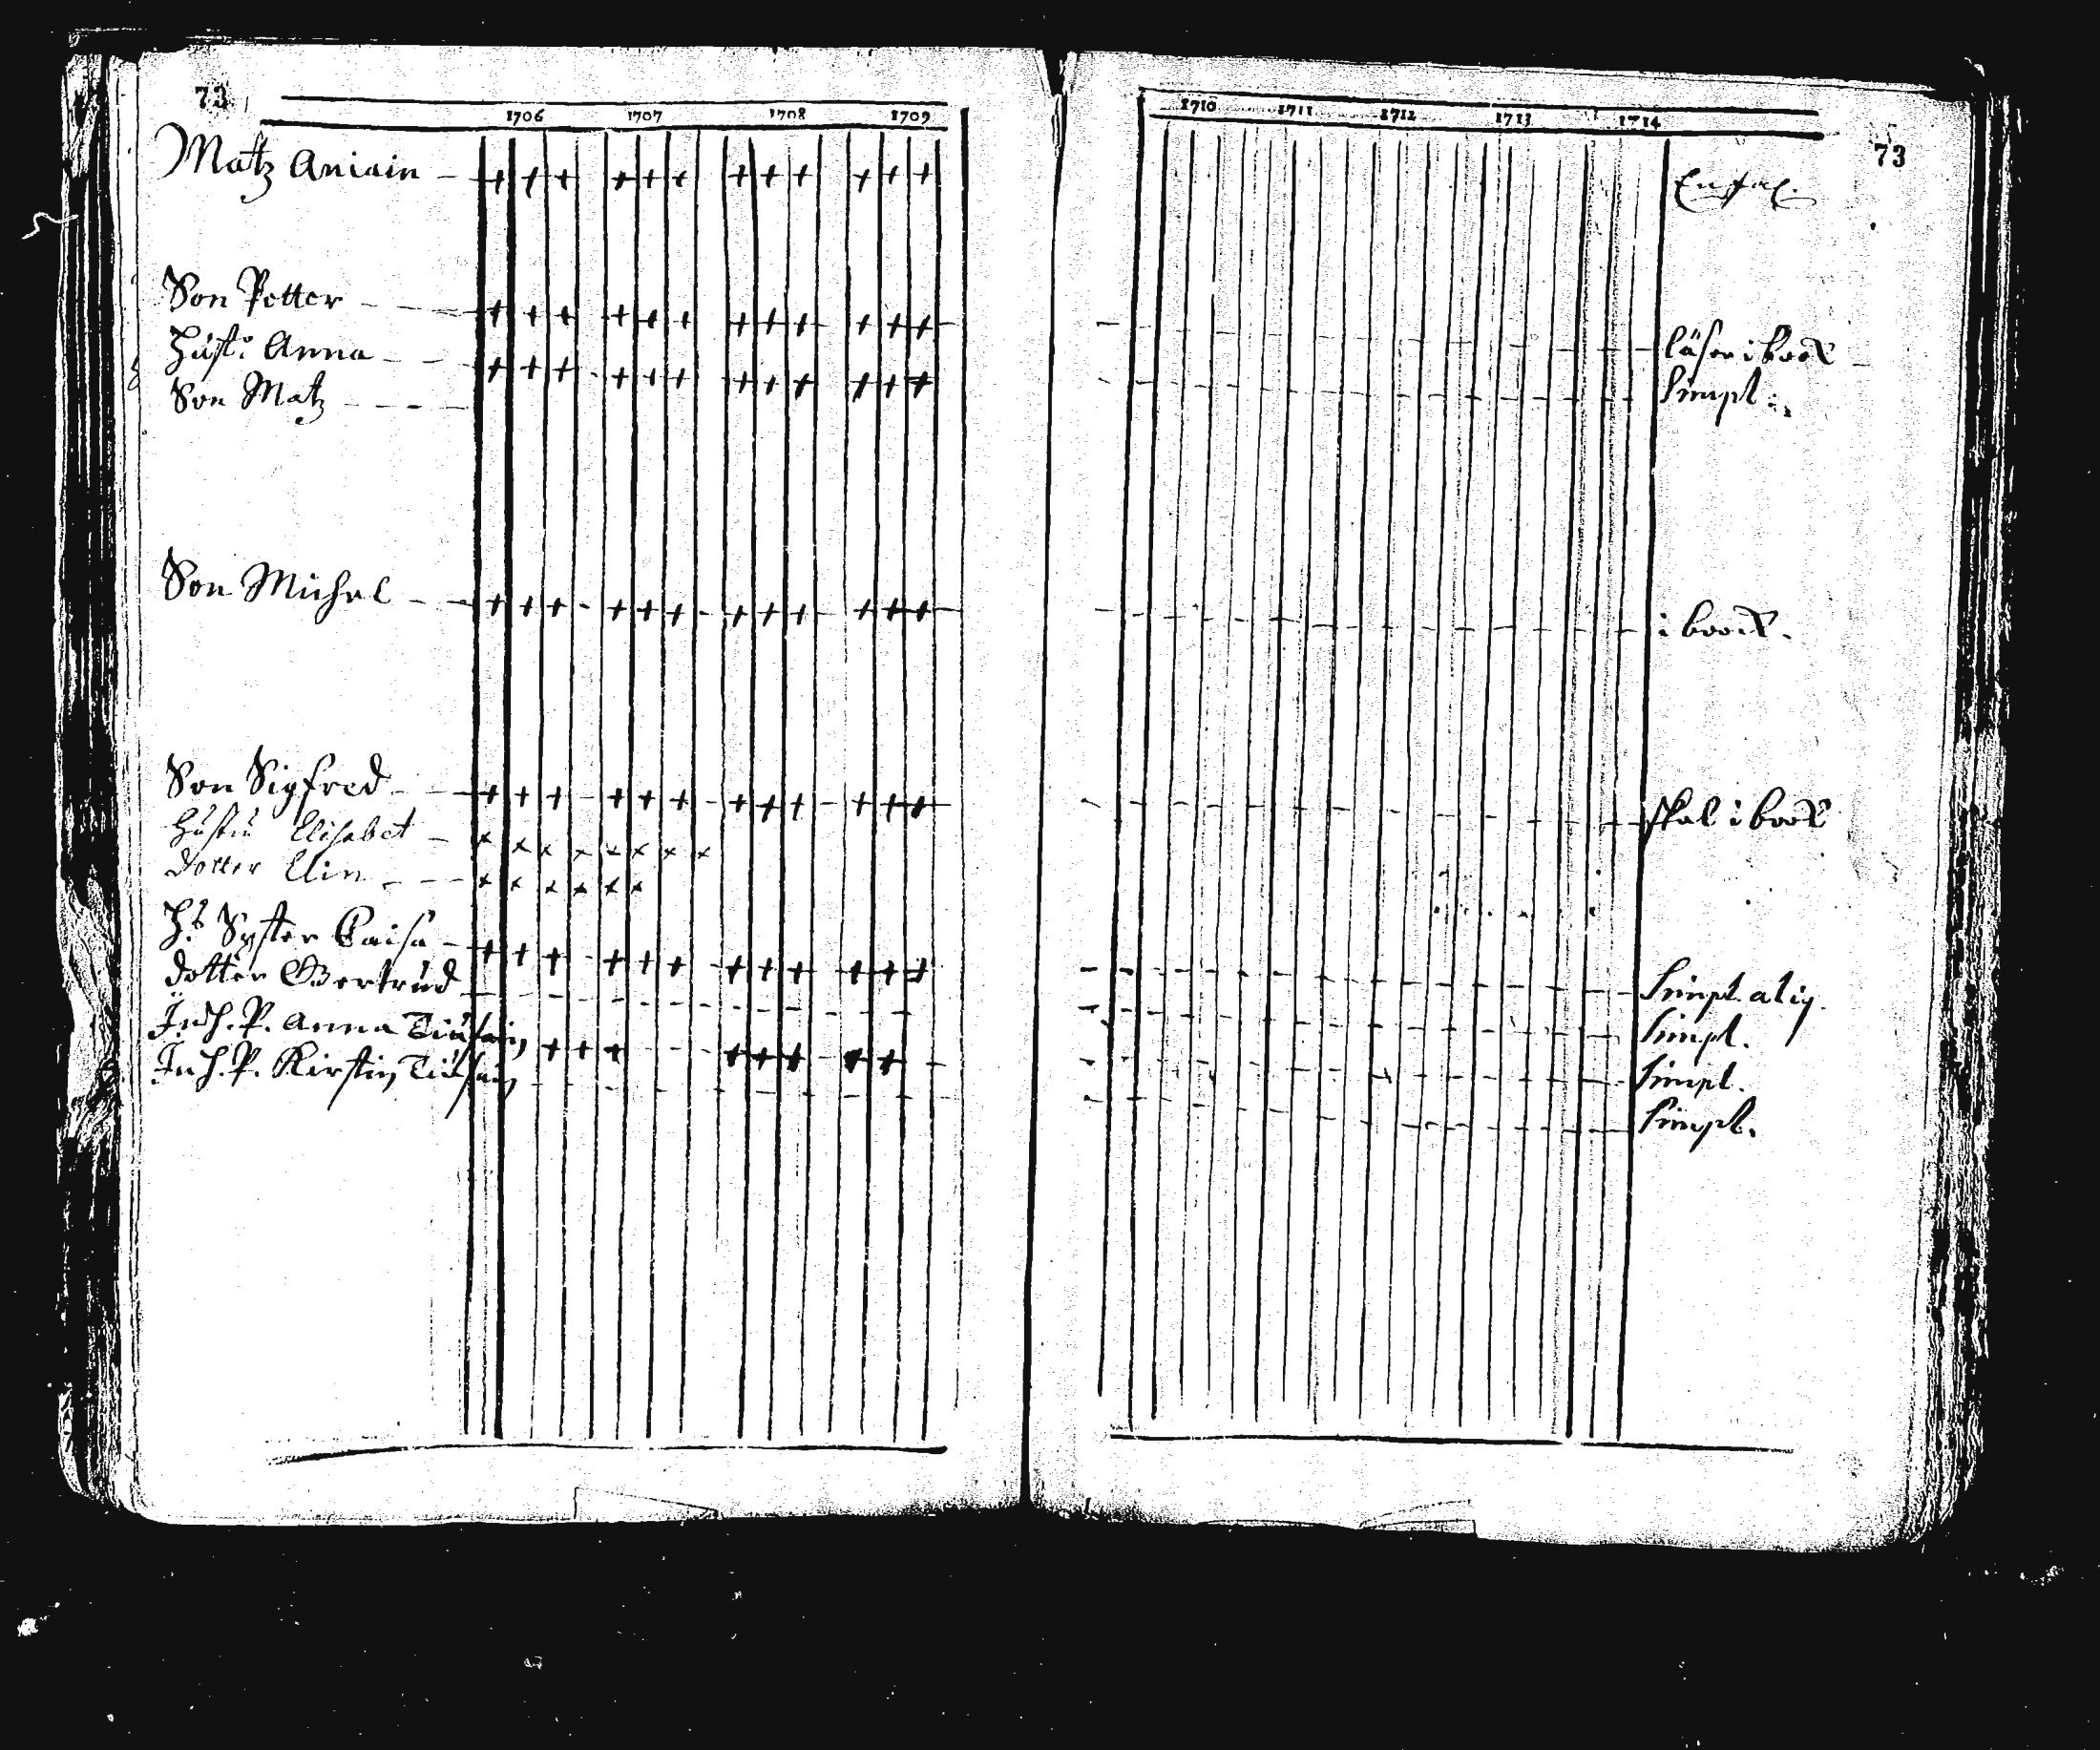 73
1706 1707 1708 1709
Matz Aniain
Son Petter
Hust: Anna
Son Matz
Son Michel
Son Sigfred
Hustru Elisabet
dotter Elin
H:s Syster Caisa
dotter Gertrud
Inh. P. Anna
Inh. P. Kirstin
1710 1711 1712 1713 1714
73
läser i book
Simpl:
i book.
skal i book
Simpl. alig.
Simpl.
Simpl.
Simpl.